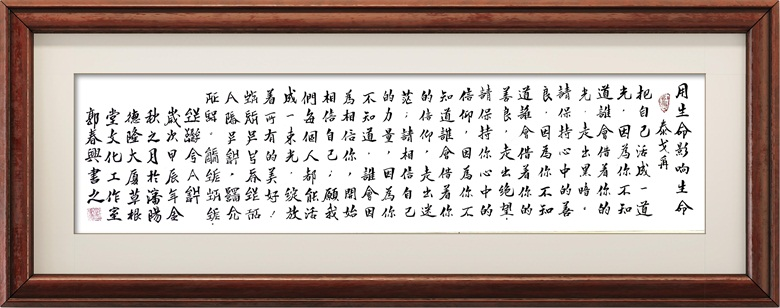 用生命影响生命
泰戈爾
把自己活成一道
光，因為你不知
道誰會借着你的
光，走出黑暗，
請保持心中的善
良，因為你不知
道誰會借着你的
善良，走出絶望，
請保持你心中的
信仰，因為你不
知道誰會借着你
的信仰，走出迷
茫；請相信自己
的力量，因為你
不知道，誰會因
為相信你，開始
相信自己；願我
們每個人都能活
成一束光，綻放
着所有的美好！
歲次甲辰年金
秋之月於瀋陽
德隆大厦草根
堂文化工作室
郭春興書之